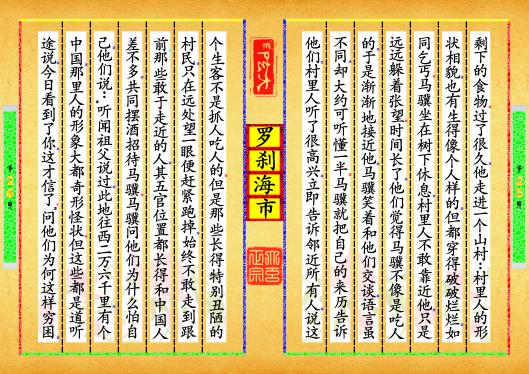 剩下的食物过了很久他走进一个山村：村里人的形
状相貌也有生得像个人样的但都穿得破破烂烂如
同乞丐马骥坐在树下休息村里人不敢靠近他只是
远远躲着张望时间长了他们觉得马骥不像是吃人
的于是渐渐地接近他马骥笑着和他们交谈语言虽
不同却大约可听懂一半马骥就把自己的来历告诉
他们村里人听了很高兴立即告诉邻近所有人说这
罗刹海市
个生客不是抓人吃人的但是那些长得特别丑陋的
村民只在远处望一眼便赶紧跑掉始终不敢走到跟
前那些敢于走近的人其五官位置都长得和中国人
差不多共同摆酒招待马骥马骥问他们为什么怕自
己他们说：听闻祖父说过此地往西二万六千里有个
中国那里人的形象大都奇形怪状但这些都是道听
途说今日看到了你这才信了问他们为何这样穷困